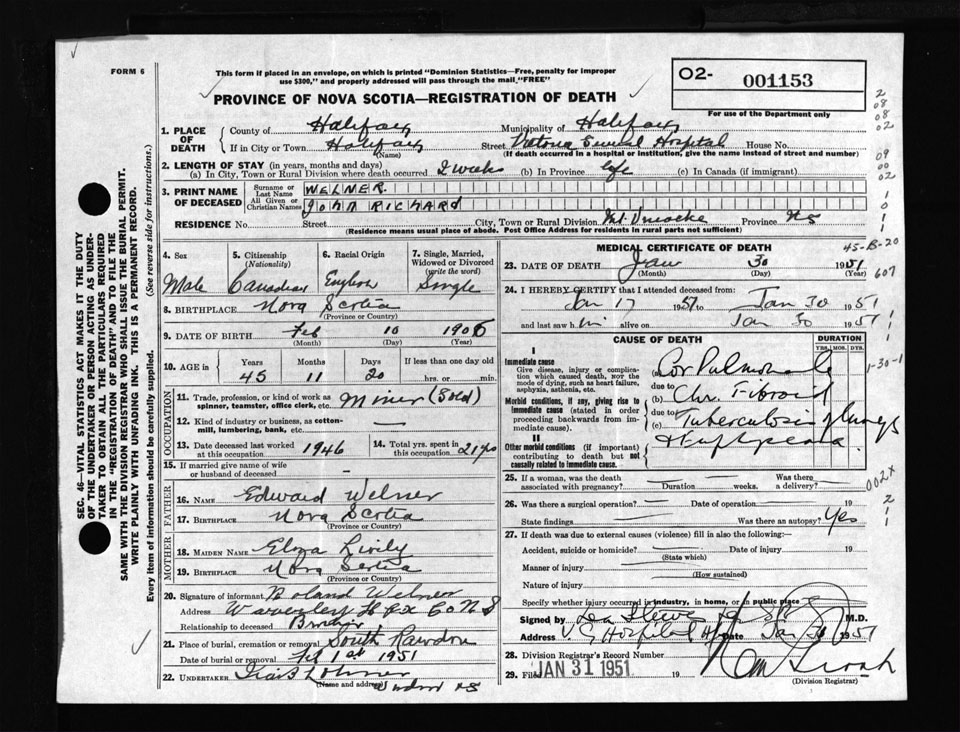 FORM 6
This form if placed in an envelope, on which is printed "Dominion Statistics—Free, penalty for improper
use $300," and properly addressed will pass through the mail "FREE"
O2- 001153
For use of the Department only
PROVINCE OF NOVA SCOTIA—REGISTRATION OF DEATH
1. PLACE OF DEATH
County of Halifax Municipality of Halifax
If in City or Town Halifax Street Victoria General Hospital House No.
(Name) (If death occurred in a hospital or institution, give the name instead of street and number)
2. LENGTH OF STAY (in years, months and days)
(a) In City, Town or Rural Division where death occurred 2 weeks (b) In Province life (c) In Canada (if immigrant)
3. PRINT NAME OF DECEASED
Surname or Last Name WELNER
All Given or Christian Names JOHN RICHARD
RESIDENCE No. Street City, Town or Rural Division Mt. Uniacke Province NS
(Residence means usual place of abode. Post Office Address for Rural parts not sufficient)
4. Sex Male
5. Citizenship (Nationality) Canadian
6. Racial Origin English
7. Single, Married, Widowed or Divorced (write the word) Single
8. BIRTHPLACE Nova Scotia
(Province or Country)
9. DATE OF BIRTH Feb 10 190
(Month) (Day) (Year)
10. AGE in Years Months Days If less than one day old
45 11 20 hrs. or min.
OCCUPATION
11. Trade, profession, or kind of work as
spinner, teamster, office clerk, etc. Miner (Gold)
12. Kind of industry or business, as cotton-
mill, lumbering, bank, etc. —
13. Date deceased last worked at this occupation 1946
14. Total yrs. spent in this occupation 21 yrs
15. If married give name of wife
or husband of deceased —
FATHER
16. NAME Edward Welner
17. BIRTHPLACE Nova Scotia
(Province or Country)
MOTHER
18. MAIDEN NAME Lively
19. BIRTHPLACE Nova Scotia
(Province or Country)
20. Signature of informant Roland Welner
Address Waverley Hfx Co N S
Relationship to deceased Brother
21. Place of burial, cremation or removal South Rawdon
Date of burial or removal Feb 1st 1951
22. UNDERTAKER
(Name and address) Windsor NS
MEDICAL CERTIFICATE OF DEATH
23. DATE OF DEATH Jan 30 1951
(Month) (Day) (Year)
24. I HEREBY CERTIFY that I attended deceased from:
Jan 17 1951 to Jan 30 1951
and last saw him alive on Jan 30 1951
CAUSE OF DEATH
DURATION
YRS. MOS. DYS.
I
Immediate cause
Give disease, injury or complica-
tion which caused death, NOT the
mode of dying, such as heart failure,
asphyxia, asthenia, etc.
(a) Cor Pulmonale
due to
Morbid conditions, if any, giving rise to
immediate cause (stated in order
proceeding backwards from im-
mediate cause).
(b) Chr. Fibroid
due to
(c) Tuberculosis of lungs
II
Other morbid conditions (if important)
contributing to death but not
causally related to immediate cause.
25. If a woman, was the death
associated with pregnancy? Duration weeks. Was there a delivery?
26. Was there a surgical operation? — Date of operation 19
State findings Was there an autopsy? Yes
27. If death was due to external causes (violence) fill in also the following:
Accident, suicide or homicide? Date of injury 19
(State which)
Manner of injury
(How sustained)
Nature of injury
Specify whether injury occurred in industry, in home, or in public place
Signed by M.D.
Address V. G. Hospital Date Jan 30 1951
28. Division Registrar's Record Number
29. Filed JAN 31 1951 19
(Division Registrar)
SEC. 46—VITAL STATISTICS ACT MAKES IT THE DUTY
OF THE UNDERTAKER OR PERSON ACTING AS UNDER-
TAKER TO OBTAIN ALL THE PARTICULARS REQUIRED
IN THE "REGISTRATION OF DEATH" AND TO FILE THE
SAME WITH THE DIVISION REGISTRAR WHO SHALL ISSUE THE BURIAL PERMIT.
WRITE PLAINLY WITH UNFADING INK. THIS IS A PERMANENT RECORD.
Every item of information should be carefully supplied. (See reverse side for instructions.)
2
08
08
02
09
00
02
1
0
1
1
45-B-20
607
1
1-30-1
002X
2
1
1